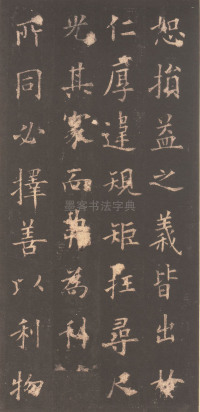 恕損益之義皆出於
仁厚違規矩枉尋尺
光其而為利
所同必擇善以利物
墨客书法字典